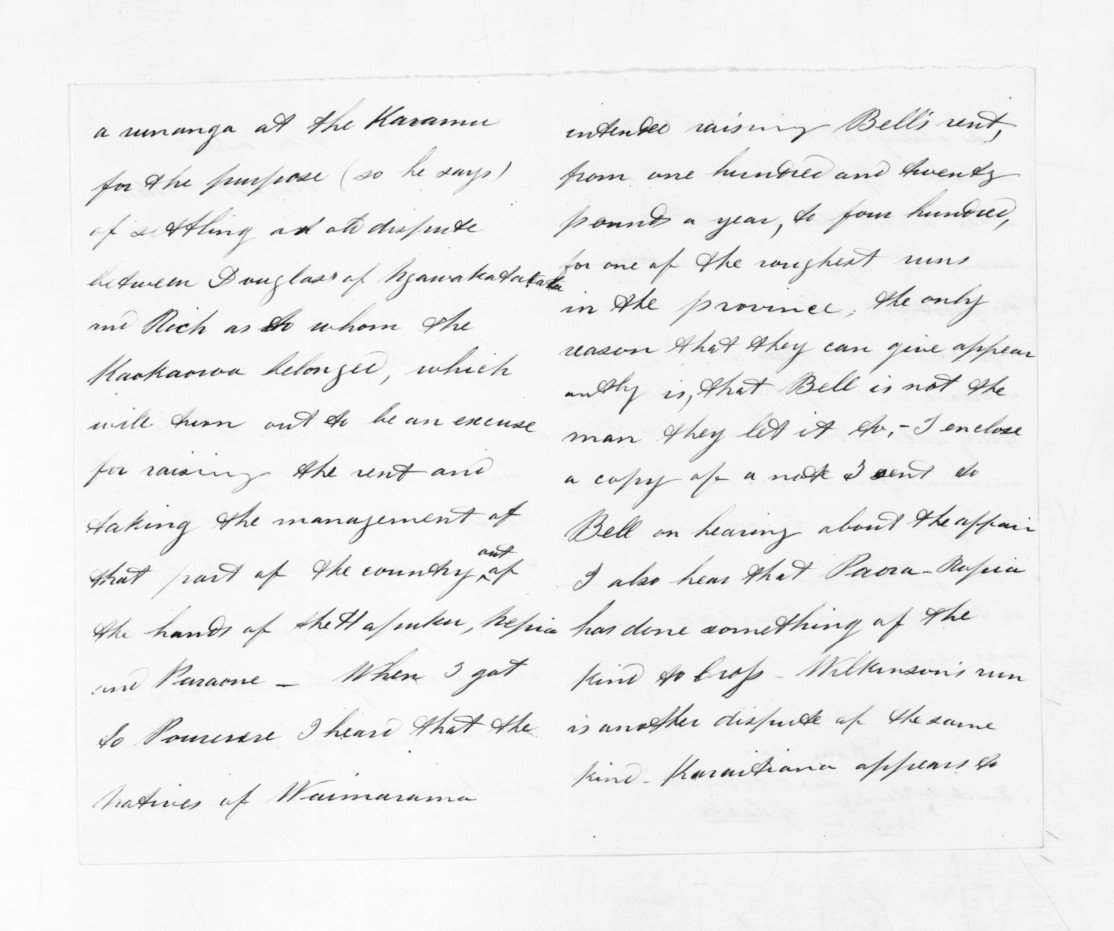 a runanga at the Karamu
for the purpose (so he says)
of settling an old dispute
between Douglas of Ngawakatatara
and Rich as to whom the
Kaokaoroa belonged, which
will turn out to be an excuse
for raising the rent and
taking the management of
that part of the country out of
the hands of the Hapuku, Nepia
and Paraone _ When I got
to Pourerere I heard that the
Natives of Waimarama
intended raising Bell's rent,
from one hundred and twenty
pounds a year, to four hundred,
for one of the roughest runs
in the province, the only
reason that they can give appear
antly is, that Bell is not the
man they let it to, - I enclose
a copy of a note I sent to
Bell on hearing about the affair
I also hear that Paora - Ropiha
has done something of the
kind to Cross - Wilkinson's run
is another dispute of the same
kind - Karaitiana appears to